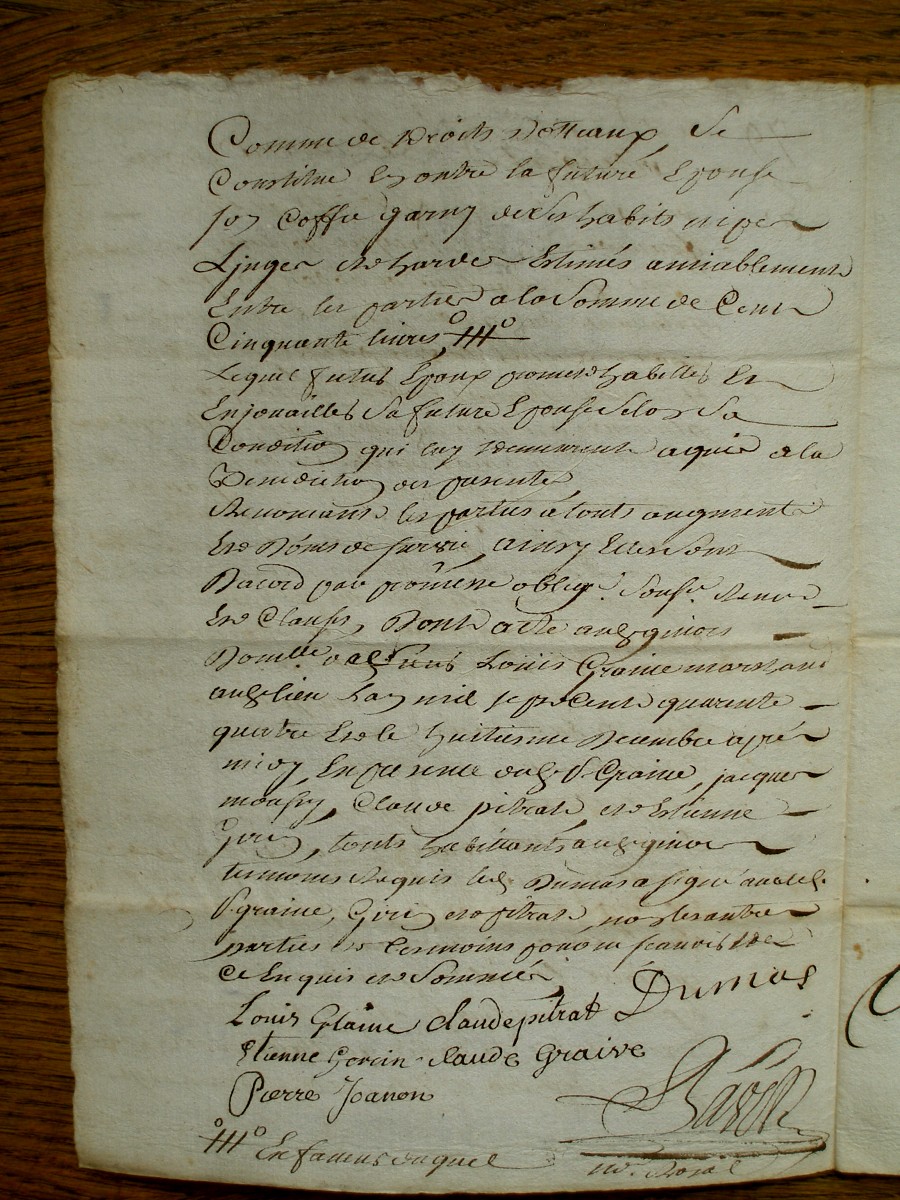 Comme de Droits Dotteaux, Se
Constitue En outre la future Epouse
son Coffre garny de ses habits nipes
Linges et hardes Estimés amiablement
Entre les parties a la Somme de Cent
Cinquante livres,
Lequel futur Epoux promet habiller Et
Enjouailler Sa future Epouse Selon Sa
Condition qui luy demeurent aquis a la
Benediction
Renoncant les parties a touts augment
Et Dons de survie, ainsy Elles Sont
Dacord par promesse oblig. Soubs. Renon
Et Clauses, Dont acte
Domlle Louis Graine marchand
aud lieu Lan mil sept Cent quarente
quatre Et le huitieme Decembre aprés
midy, En presence dud Sr Graine, jacques
Claude pitrat, et Estienne
touts habittants
temoins Requis led Dumas a signé avec led.
Sr graine, et pitrat, non les autres
parties et temoins pour ne scavoir de
Ce Enquis et Sommés
Louis Glaine Claude pitrat Dumas
Etienne Claude Graive
Pierre Joanon
En faveur duquel
no. Royal